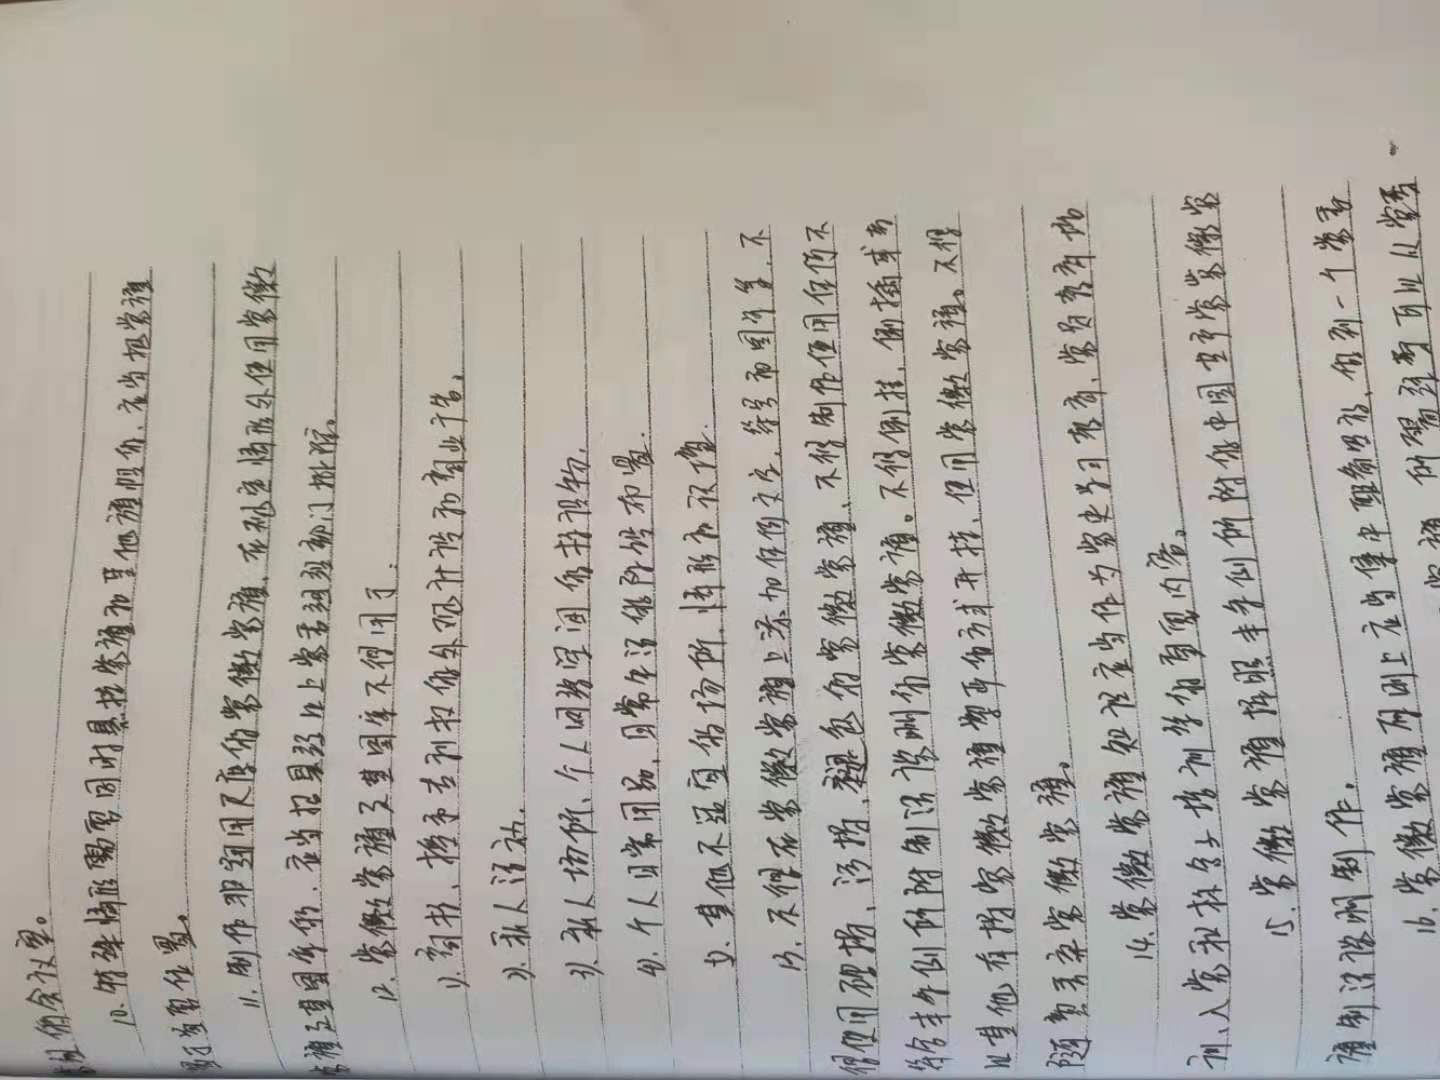 组的会议室。
10. 特殊情形需要同时悬挂党旗和其他旗帜的，应当把党旗
置于首要位置。
11. 制作非通用尺度的党徽党旗，在规定情形外使用党徽
党旗及其图案的，应当报县级以上党委组织部门批准。
12. 党徽党旗及其图案不得用于：
1). 商标、授予专利权的外观设计和商业广告。
2). 私人活动.
3). 私人场所、个人网络空间的标识物.
4). 个人日常用品，日常生活的陈设布置.
5). 其他不适宜的场所，情形和环境.
13. 不得在党徽党旗上添加任何文字，符号和图案等，不
得使用破损，污损，褪色的党徽党旗，不得制作使用任何不
符合本条例所附制法说明的党徽党旗。不得倒挂，倒插或者
以其他有损党徽党旗尊严的方式升挂，使用党徽党旗。不得
随意丢弃党徽党旗。
14. 党徽党旗知识应当作为党史学习教育，党员教育培
训、入党积极分子培训等的重要内容。
15. 党徽党旗按照本条例所附的中国共产党党徽党
旗制法说明制作。
16. 党徽党旗原则上应当集中配备吗放，做到一个党委
党旗，所需经费可以从党委